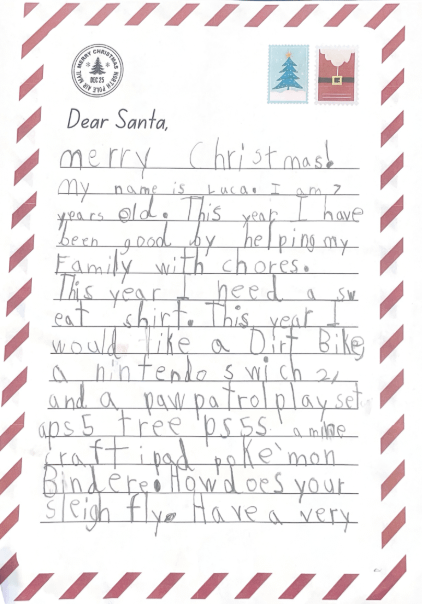 MERRY CHRISTMAS
DEC 25
NORTH POLE AIR MAIL
Dear Santa,
merry Christmas!
My name is Luca. I am 7
years old. This year I have
been good by helping my
Family with chores.
This year I need a sw
eat shirt. This year I
would like a Dirt Bike,
a nintendo swich 2,
and a paw patrol play set
a ps5 free ps5s a mine
craft ipad poke'mon
Bindere. How does your
sleigh fly. Have a very